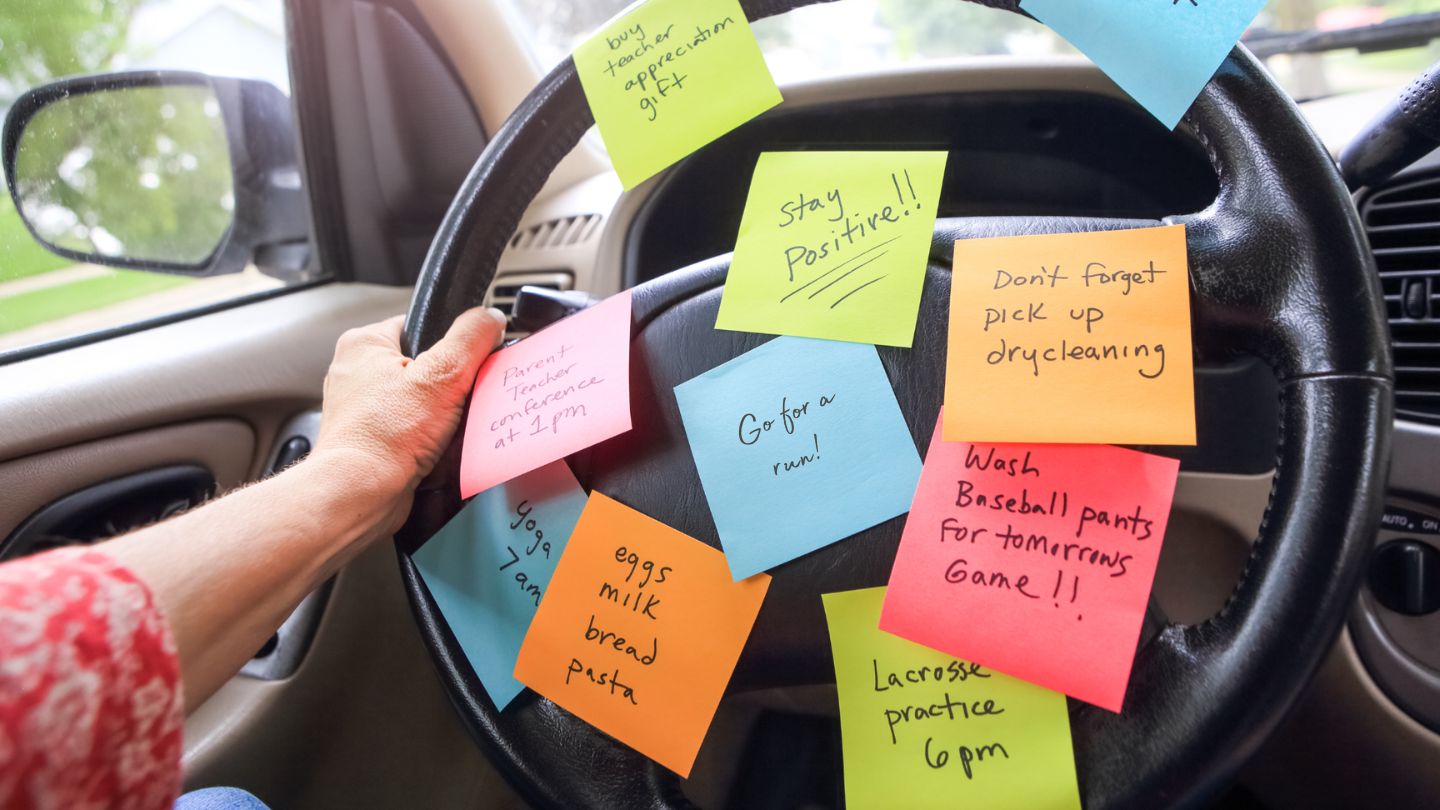 buy
teacher
appreciation
gift
Stay
Positive!!
Don't forget
pick up
drycleaning
Parent
Teacher
conference
at 1pm
Go for a
run!
Wash
Baseball pants
For tomorrows
Game!!
yoga
7am
eggs
milk
bread
pasta
Lacrosse
practice
6pm
AUTO. ON